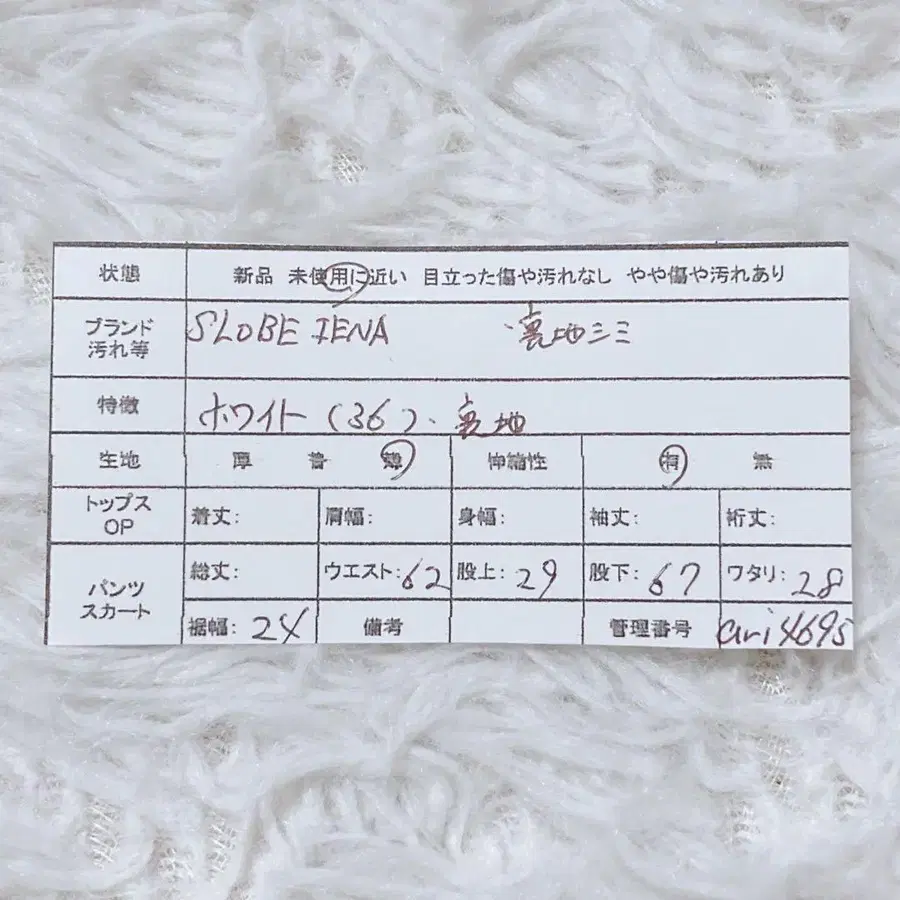 状態 新品 未使用に近い 目立った傷や汚れなし やや傷や汚れあり
ブランド 汚れ等 SLOBE IENA ・裏地シミ
特徴 ホワイト(36)・裏地
生地 厚 普 薄 伸縮性 有 無
トップス OP 着丈: 肩幅: 身幅: 袖丈: 裄丈:
パンツ スカート 総丈: ウエスト:62 股上:29 股下:67 ワタリ:28
裾幅:24 備考 管理番号 ari4695